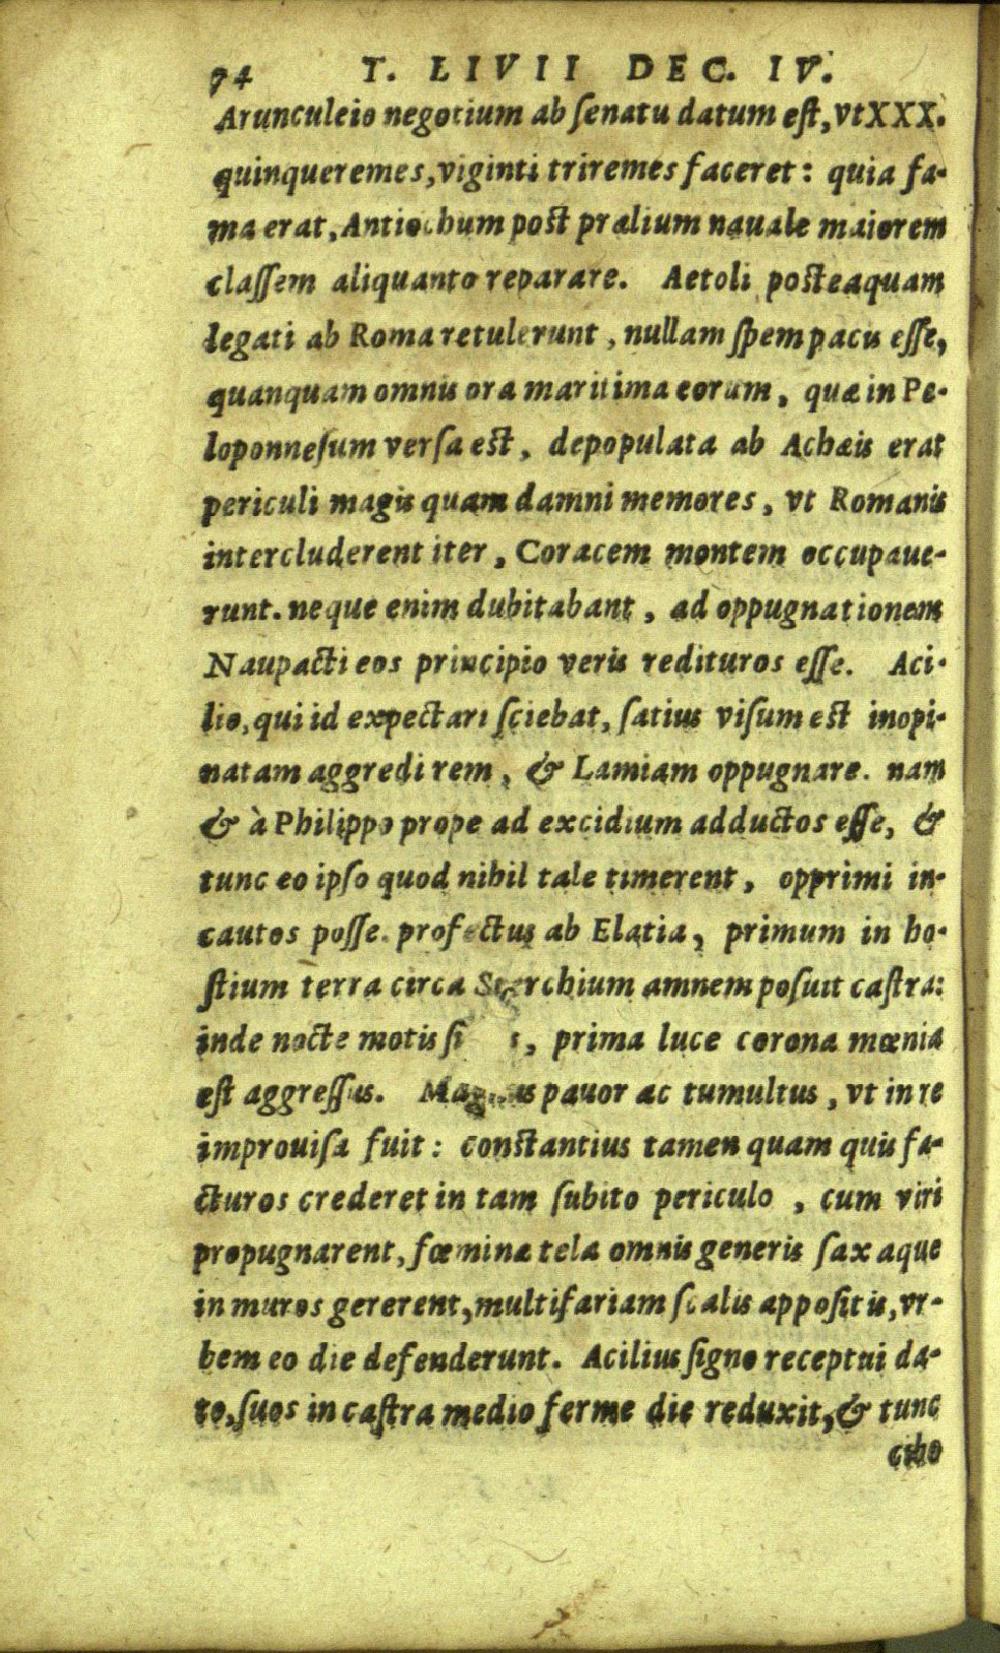 94 T. LIVII DEC. IV.
Arunculeio negotium ab ſenatu datum eſt, vt XXX.
quinqueremes, viginti triremes faceret: quia fa-
ma erat, Antiochum post prælium nauale maiorem
claſſem aliquanto reparare. Aetoli posteaquam
legati ab Roma retulerunt, nullam ſpem pacis eſſe,
quanquam omnis ora maritima eorum, quæ in Pe-
loponneſum verſa est, depopulata ab Achæis erat
periculi magis quam damni memores, vt Romanis
intercluderent iter, Coracem montem occupaue-
runt. neque enim dubitabant, ad oppugnationem
Naupacti eos principio veris redituros eſſe. Aci-
lio, qui id expectari ſciebat, ſatius viſum est inopi-
natam aggredi rem, & Lamiam oppugnare. nam
& à Philippo prope ad excidium adductos eſſe, &
tunc eo ipſo quod nihil tale timerent, opprimi in-
cautos poſſe. profectus ab Elatia, primum in ho-
ſtium terra circa amnem poſuit caſtra:
inde nocte motis , prima luce corona mœnia
eſt aggreſſus. Magnus pauor ac tumultus, vt in re
improuiſa fuit: constantius tamen quam quis fa-
cturos crederet in tam ſubito periculo, cum viri
propugnarent, fœminæ tela omnis generis ſaxaque
in muros gererent, multifariam ſcalis appoſitis, vr-
bem eo die defenderunt. Acilius ſigno receptui da-
to, ſuos in caſtra medio ferme die reduxit, & tunc
cibo